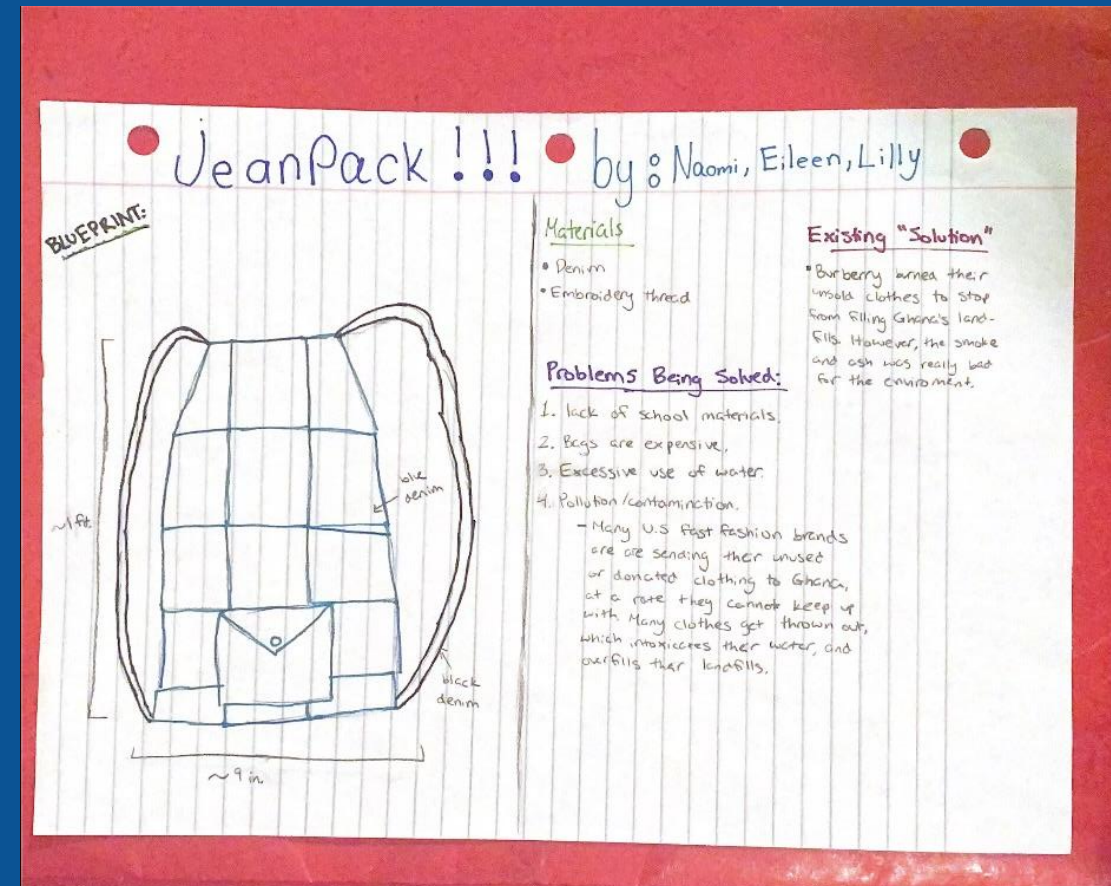 JeanPack !!! by: Naomi, Eileen, Lilly
BLUEPRINT:
~1ft
blue
denim
black
denim
~9 in
Materials
• Denim
• Embroidery thread
Problems Being Solved:
1. lack of school materials.
2. Bags are expensive.
3. Excessive use of water.
4. Pollution/contamination.
- Many U.S fast fashion brands
are are sending their unused
or donated clothing to Ghana,
at a rate they cannot keep up
with. Many clothes get thrown out,
which intoxicates their water, and
overfills their landfills.
Existing "Solution"
• Burberry burned their
unsold clothes to stop
from filling Ghana's land-
fills. However, the smoke
and ash was really bad
for the enviroment.